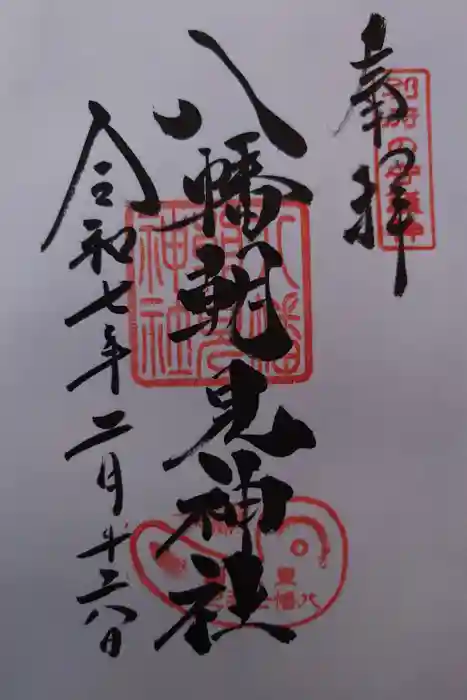 奉拝
八幡朝見神社
令和七年二月十二八日
八幡朝見神社